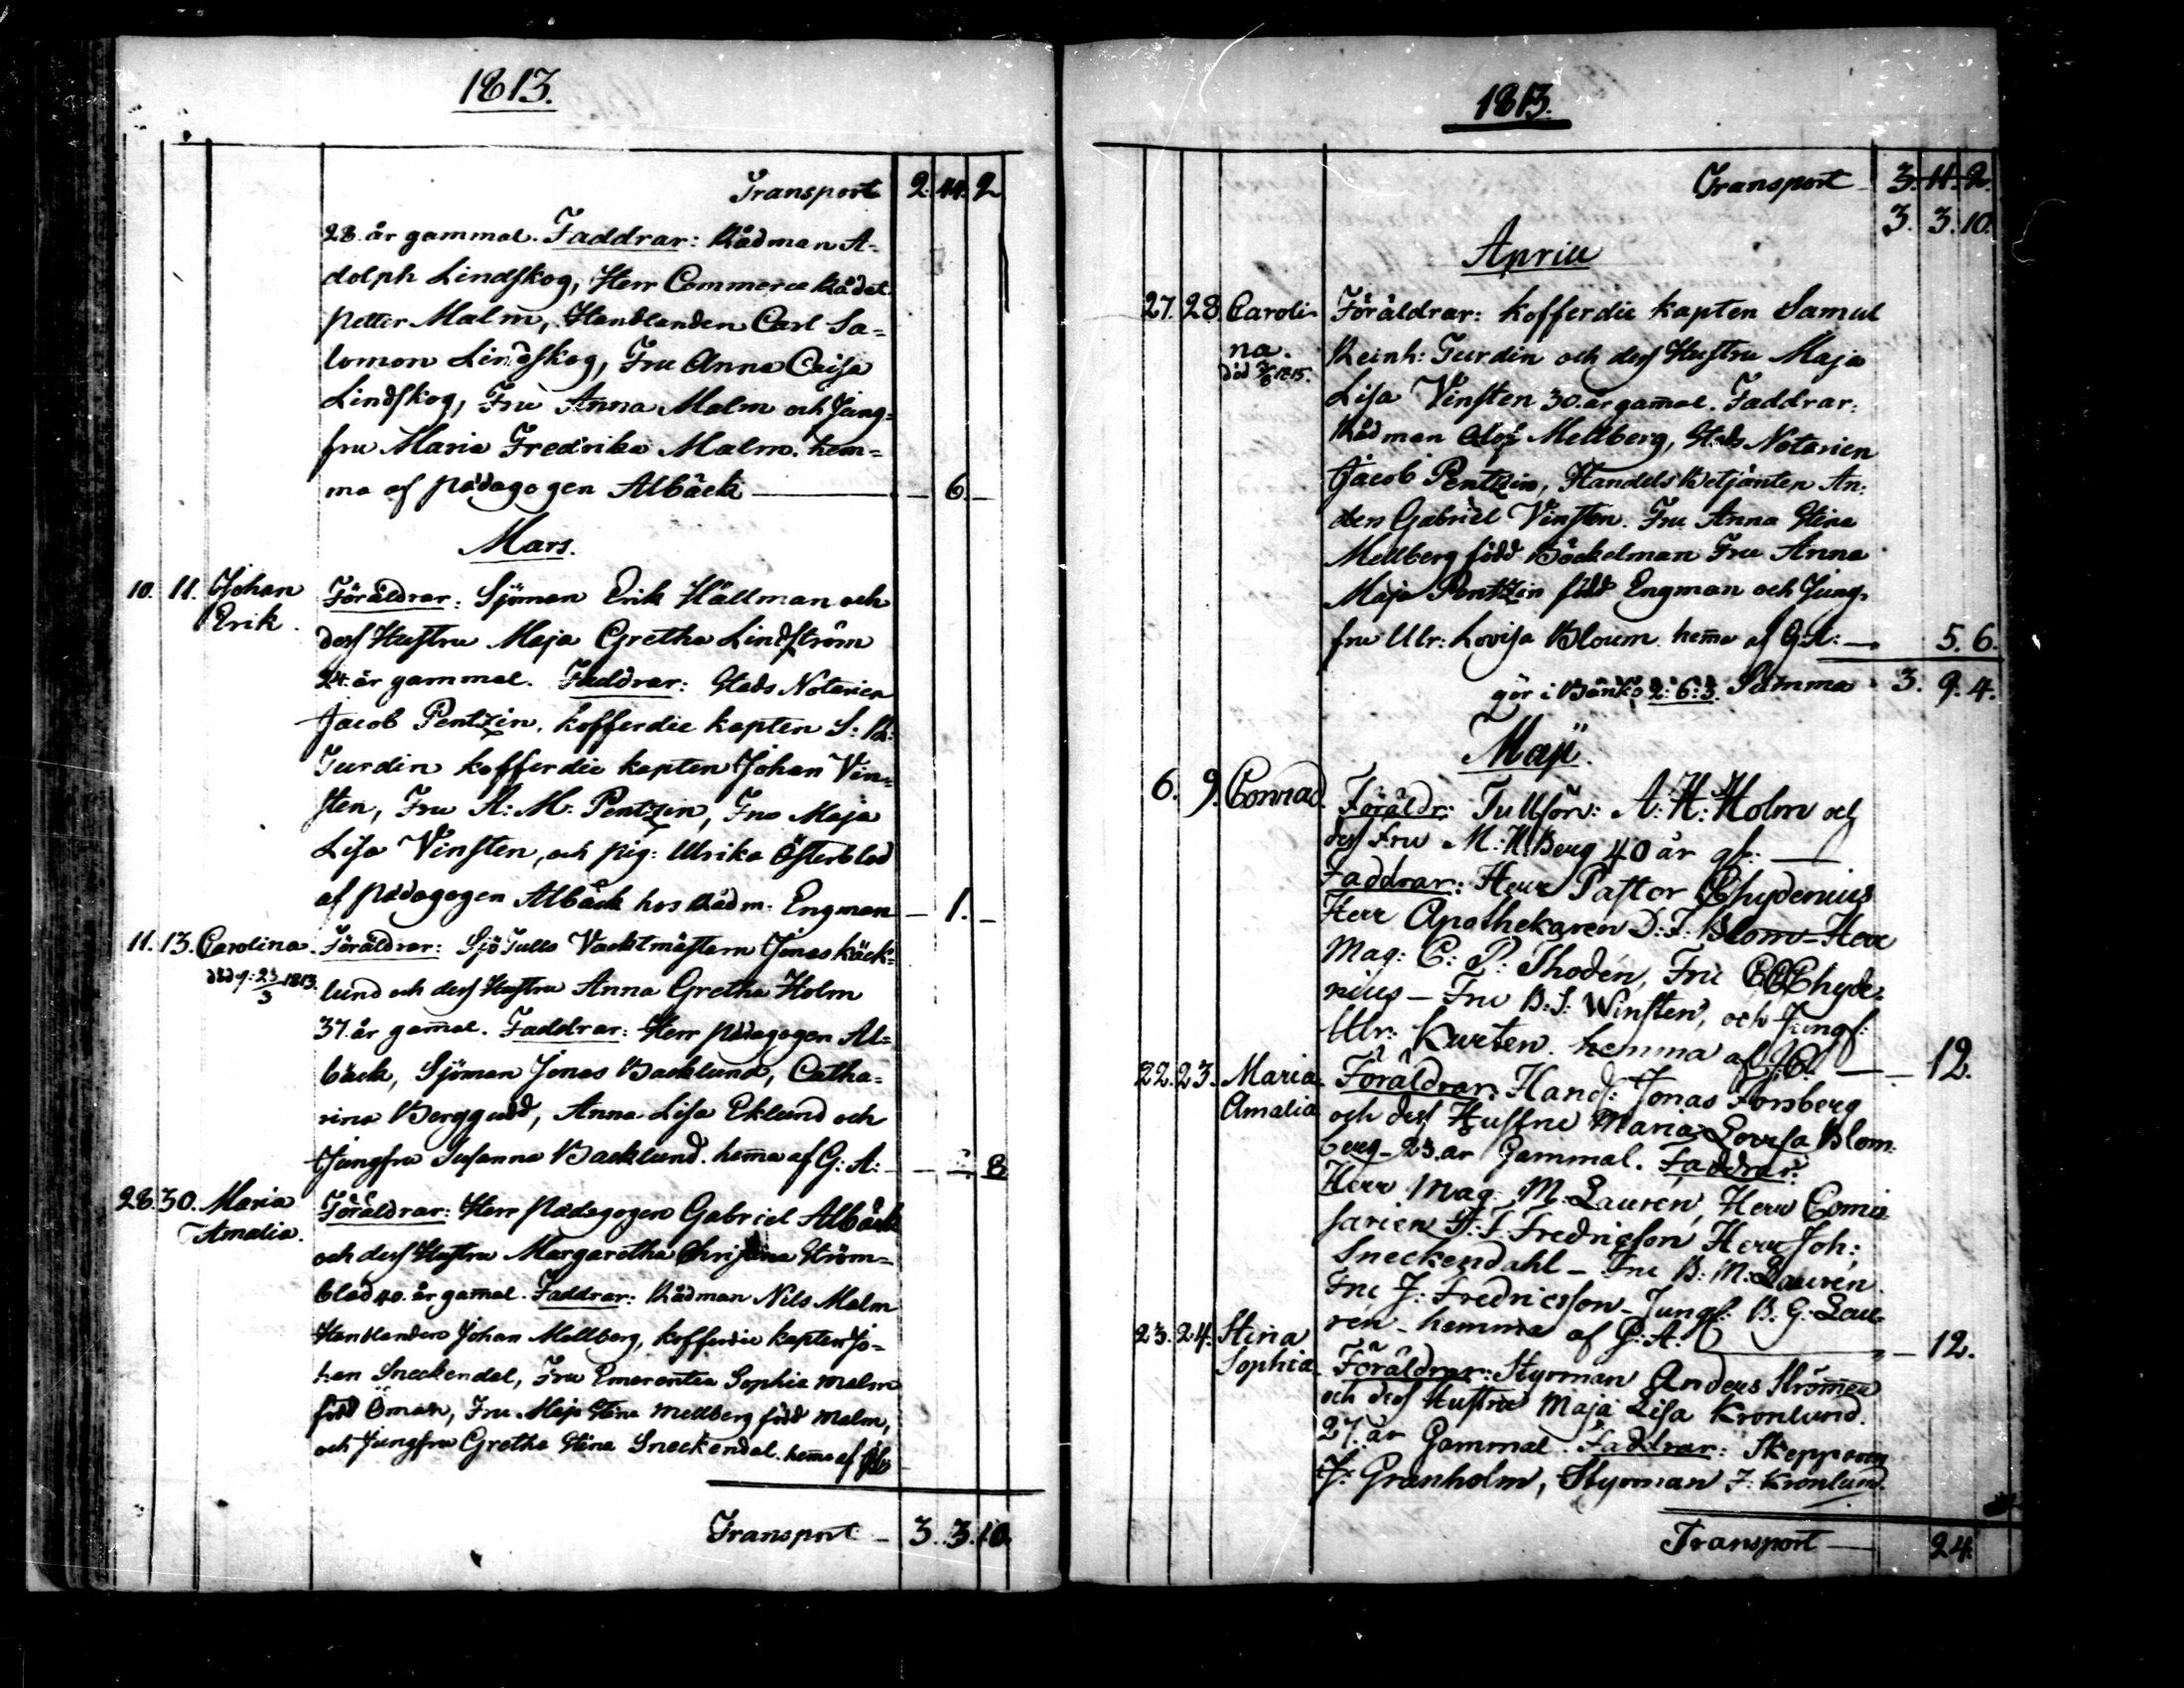 1813.
Transport 2. 44. 2
28. år gammal. Faddrar: Rådman A-
dolph Lindskog, Herr Commerce Rådet
Petter Malm, Handlanden Carl Sa-
lomon Lindskog, Fru Anna Caisa
Lindskog, Fru Anna Malm och Jung-
fru Maria Fredrika Malm. hem-
ma af pädagogen Albäck — — 6. —
Mars.
10. 11. Johan Föräldrar: Sjöman Erik Hällman och
Erik. dess Hustru Maja Gretha Lindström
24. år gammal. Faddrar: Stads Notarien
Jacob Pentzin, kofferdie kapten S: R:
Turdin kofferdie kapten Johan Vin-
sten, Fru A: M: Pentzin, Fru Maja
Lisa Vinsten, och pig: Ulrika Österblad
af pädagogen Albäck hos Rådm: Engman — 1. —
11. 13. Carolina. Föräldrar: Sjö Tulls Vacktmästarn Jonas Bäck-
död d: 23/3 1813. lund och dess Hustru Anna Gretha Holm
37. år gam̄al. Faddrar: Herr pädagogen Al-
bäck, Sjöman Jonas Backlund, Catha-
rina Berggudd, Anna Lisa Eklund och
Jungfru Susanna Backlund. hem̄a af G: A: — 8
28. 30. Maria Föräldrar: Herr Pädagogen Gabriel Albäck
Amalia. och dess Hustru Margaretha Christina Ström-
blad 40. år gam̄al. Faddrar: Rådman Nils Malm
Handlanden Johan Mellberg, kofferdie kapten Jo-
han Sneckendal, Fru Emerentia Sophia Malm
född Öman, Fru Maja Stina Mellberg född Malm,
och Jungfru Gretha Stina Sneckendal. hem̄a af
Transport — 3. 3. 10.
1813.
Transport — 3. 11. 2.
3. 3. 10.
Aprill
27. 28. Caroli- Föräldrar: kofferdie kapten Samuel
na. Reinh: Turdin och dess Hustru Maja
död 1815. Lisa Vinsten 30. år gam̄al. Faddrar:
Rådman Olof Mellberg, Stads Notarien
Jacob Pentzin, Handels Betjänten An-
ders Gabriel Vinsten. Fru Anna Stina
Mellberg född Böckelman Fru Anna
Maja Pentzin född Engman och Jung-
fru Ulr: Lovisa Bloum. hem̄a af G: A: — 5. 6.
gör i Banko 2: 6: 3. Summa 3. 9. 4.
Maji.
6. 9. Conrad. Föräldr: Tullför: A: H: Holm och
dess Fru M: H Berg 40 år gl: —
Faddrar: Herr Pastor Chydenius
Herr Apothekaren D: F: Blom – Herr
Mag: C: P: Thodén, Fru Chyde-
nius – Fru B: S: Winsten, och Jungf:
Ulr: Kurtén. hemma af J: C. — — 12.
22. 23. Maria Föräldrar: Handl: Jonas Forsberg
Amalia och dess Hustru Maria Lovisa Blom-
berg – 23. år Gammal. Faddrar:
Herr Mag: M: Laurén, Herr Comis-
sarien F: F Fredricson Herr Joh:
Sneckendahl – Fru B: M: Laurén
Fru J: Fredricsson – Jungf: B: G: Lau-
rén – hemma af G: A: — 12.
23. 24. Stina
Sophia Föräldrar: Styrman Anders Strömer
och dess Hustru Maja Lisa Kronlund.
27. år Gammal. Faddrar: Skepparen
J: Granholm, Styrman J: Kronlund.
Transport — 24.